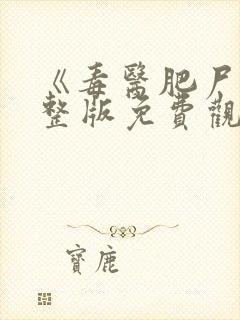 《毒醫肥尸
整版免費觀
寶鹿